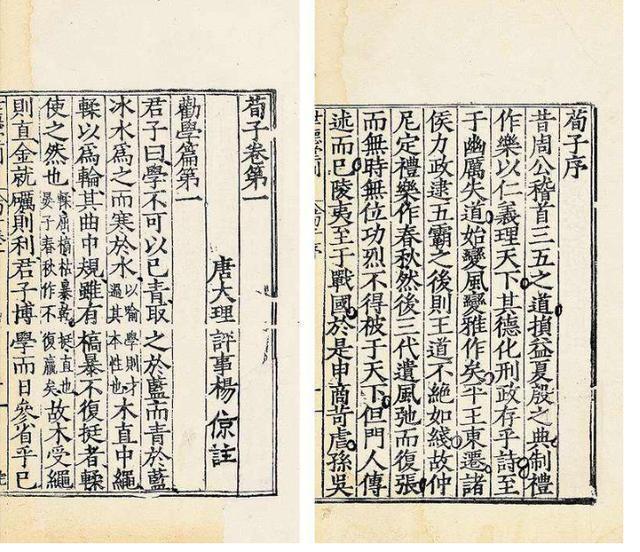 荀子序
昔周公稽首三五之道損益夏殷之典制禮
作樂以仁義理天下其德化刑政存乎詩至
于幽厲失道始變風變雅作矣平王東遷諸
侯力政逮五霸之後則王道不絶如綫故仲
尼定禮樂作春秋然後三代遺風弛而復張
而無時無位功烈不得被于天下但門人傳
述而已陵夷至于戰國於是申商苛虐孫吳
荀子卷第一
唐大理評事楊倞註
勸學篇第一
君子曰學不可以已青取之於藍而青於藍
冰水爲之而寒於水以喻學則才過其本性也木直中繩
輮以爲輪其曲中規雖有槁暴不復挺者輮
使之然也輮屈槁枯暴乾挺直也晏子春秋作不復羸矣故木受繩
則直金就礪則利君子博學而日參省乎已